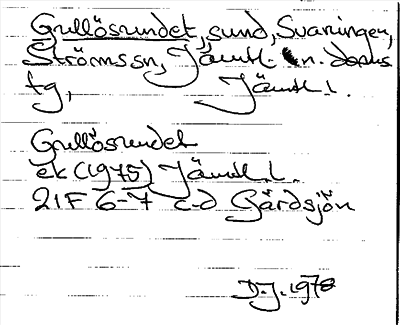 Grillösundet, sund, Svaningen,
Ströms sn, Jämtl. n. doms
tg, Jämtl l.
Grillösundet
ek (1975) Jämtl. l.
21F 6-7 c-d Gärdsjön
D.J. 1978